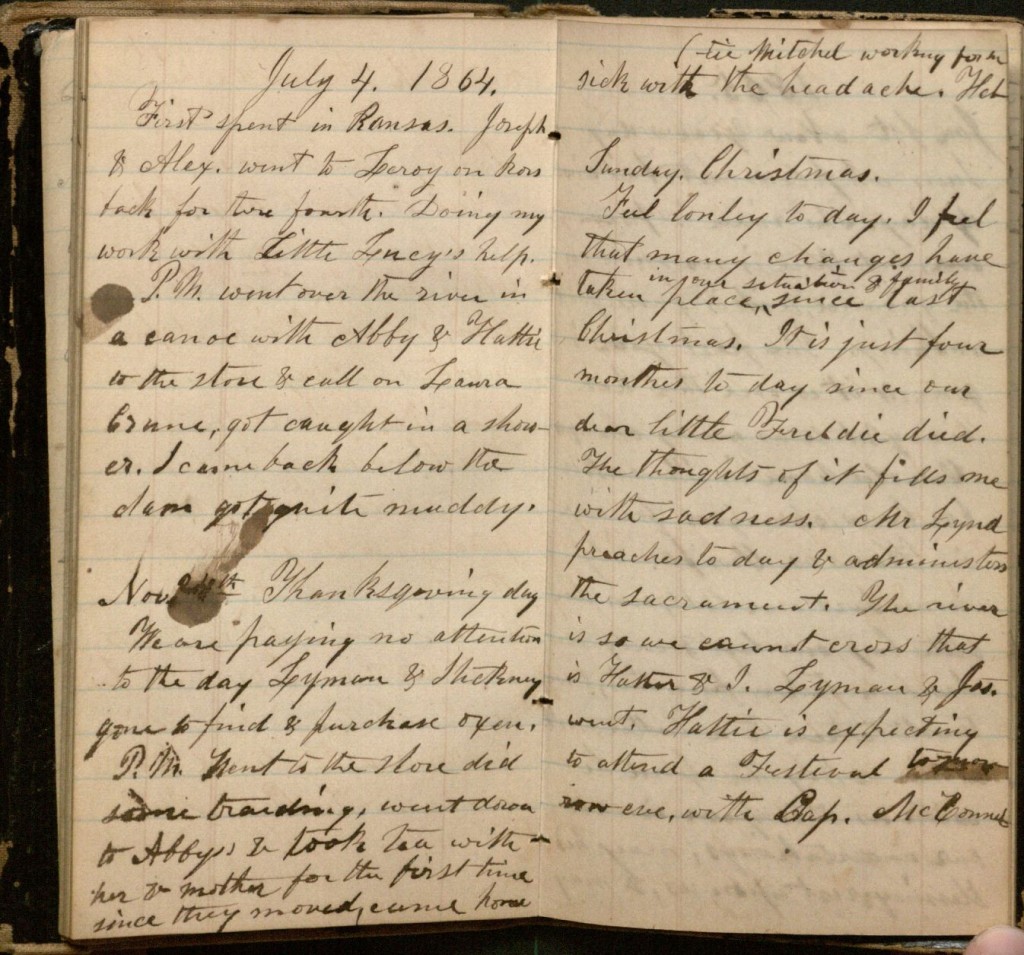 July 4. 1864.
First spent in Kansas. Joseph
& Alex. went to Leroy on hors
back for there fourth. Doing my
work with Little Lucy's help.
P.M. went over the river in
a canoe with Abby & Hattie
to the store & call on Laura
Crane, got caught in a show-
er. I came back below the
dam got quite muddy.
Nov 24th Thanksgiving day
We are paying no attention
to the day Lyman & Stickney
gone to find & purchase oxen.
P.M. Went to the store did
some traiding, went down
to Abbys & took tea with
her & mother for the first time
since they moved, came home
(tie Mitchel working for m
sick with the headache. Hat
Sunday. Christmas.
Feel lonley to day. I feel
that many changes have
in our situation & family
taken place, since last
Christmas. It is just four
monthes to day since our
dear little Freddie died.
The thoughts of it fills me
with sadness. Mr Lynd
preaches to day & administers
the sacrament. The river
is so we cannot cross that
is Hattie & I. Lyman & Jos.
went. Hattie is expecting
to attend a Festival tomor
row eve, with Cap. McConnel